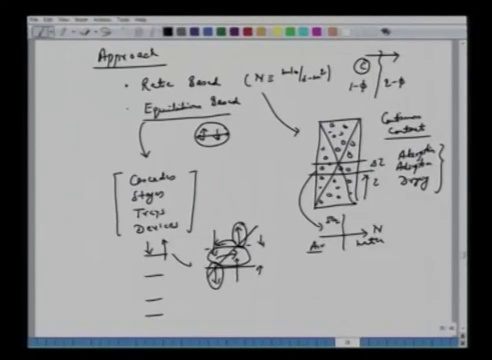 Approach
• Rate Based (N ≡ mole/s-m²)
• Equilibrium Based
Cascades
Stages
Trays
Devices
C
1-φ 2-φ
Continuous
Contact
Absorption
Adsorption
Drying
ΔZ
Z
N
Air water